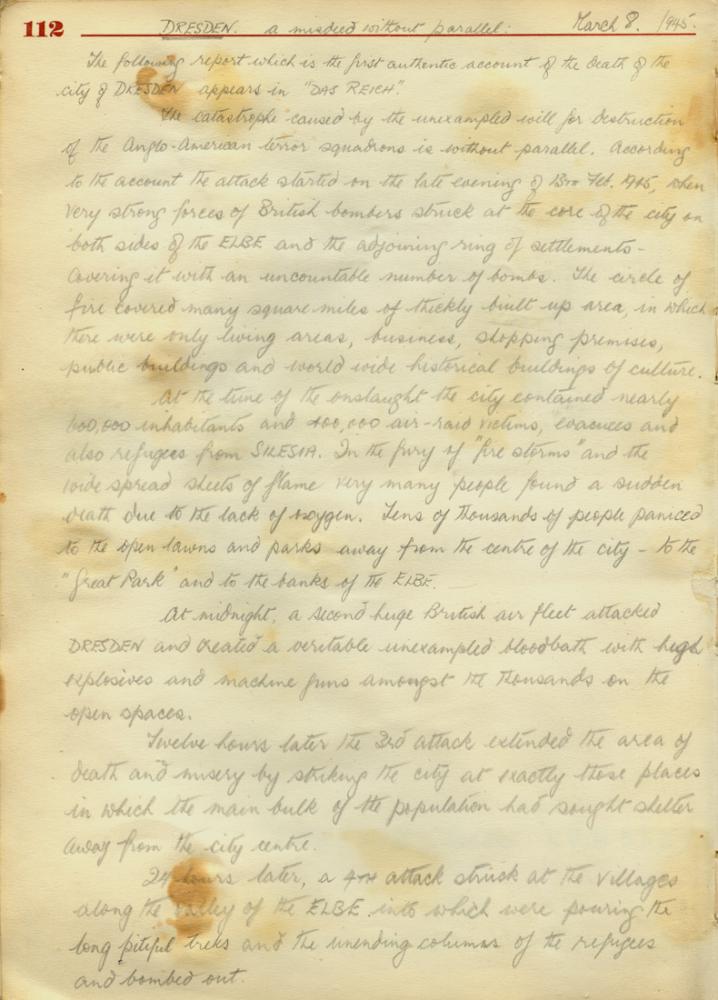 112 DRESDEN. a misdeed without parallel: March 8. 1945.
The following report which is the first authentic account of the death of the
city of DRESDEN appears in "DAS REICH".
The catastrophe caused by the unexampled will for destruction
of the Anglo-American terror squadrons is without parallel. According
to the account the attack started on the late evening of 13th Feb. 1945, when
very strong forces of British bombers struck at the core of the city on
both sides of the ELBE and the adjoining ring of settlements -
covering it with an uncountable number of bombs. The circle of
fire covered many square miles of thickly built up area, in which
there were only living areas, business, shopping premises,
public buildings and world wide historical buildings of culture.
At the time of the onslaught the city contained nearly
600,000 inhabitants and 400,000 air-raid victims, evacuees and
also refugees from SILESIA. In the fury of "fire storms" and the
wide spread sheets of flame very many people found a sudden
death due to the lack of oxygen. Tens of thousands of people paniced
to the open lawns and parks away from the centre of the city - to the
"Great Park" and to the banks of the ELBE.
At midnight, a second huge British air fleet attacked
DRESDEN and created a veritable unexampled bloodbath with high
explosives and machine guns amongst the thousands on the
open spaces.
Twelve hours later the 3rd attack extended the area of
death and misery by striking the city at exactly those places
in which the main bulk of the population had sought shelter
away from the city centre.
24 hours later, a 4TH attack struck at the villages
along the valley of the ELBE into which were pouring the
long pitiful treks and the unending columns of the refugees
and bombed out.